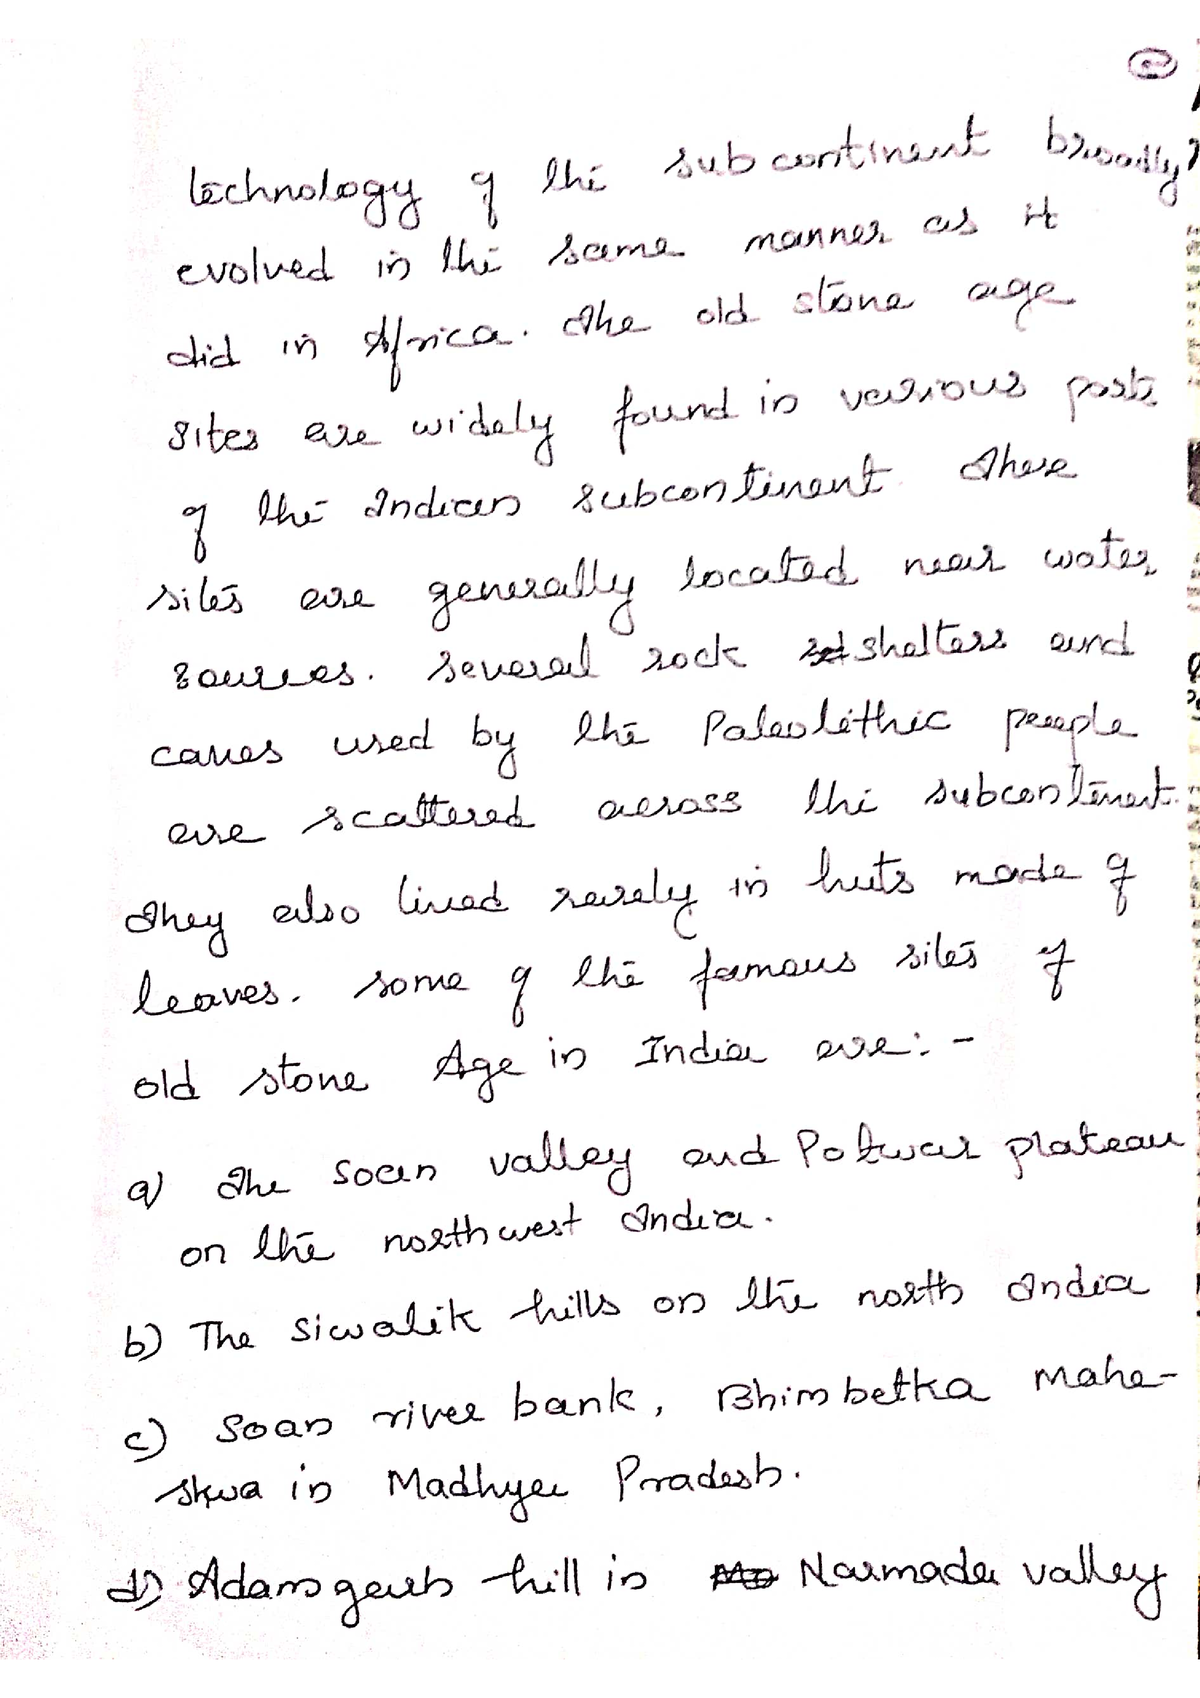 2
technology of the subcontinent broadly
evolved in the same manner as it
did in Africa. The old stone age
sites are widely found in various parts
of the Indian subcontinent. These
sites are generally located near water
sources. Several rock shelters and
caves used by the Paleolithic people
are scattered across the subcontinent.
They also lived rarely in huts made of
leaves. Some of the famous sites of
old stone Age in India are:-
a) The Soan valley and Potwar plateau
on the northwest India.
b) The Siwalik hills on the north India
c) Soan river bank, Bhimbetka Mahe-
shwa in Madhya Pradesh.
d) Adamgarh hill in Narmada valley